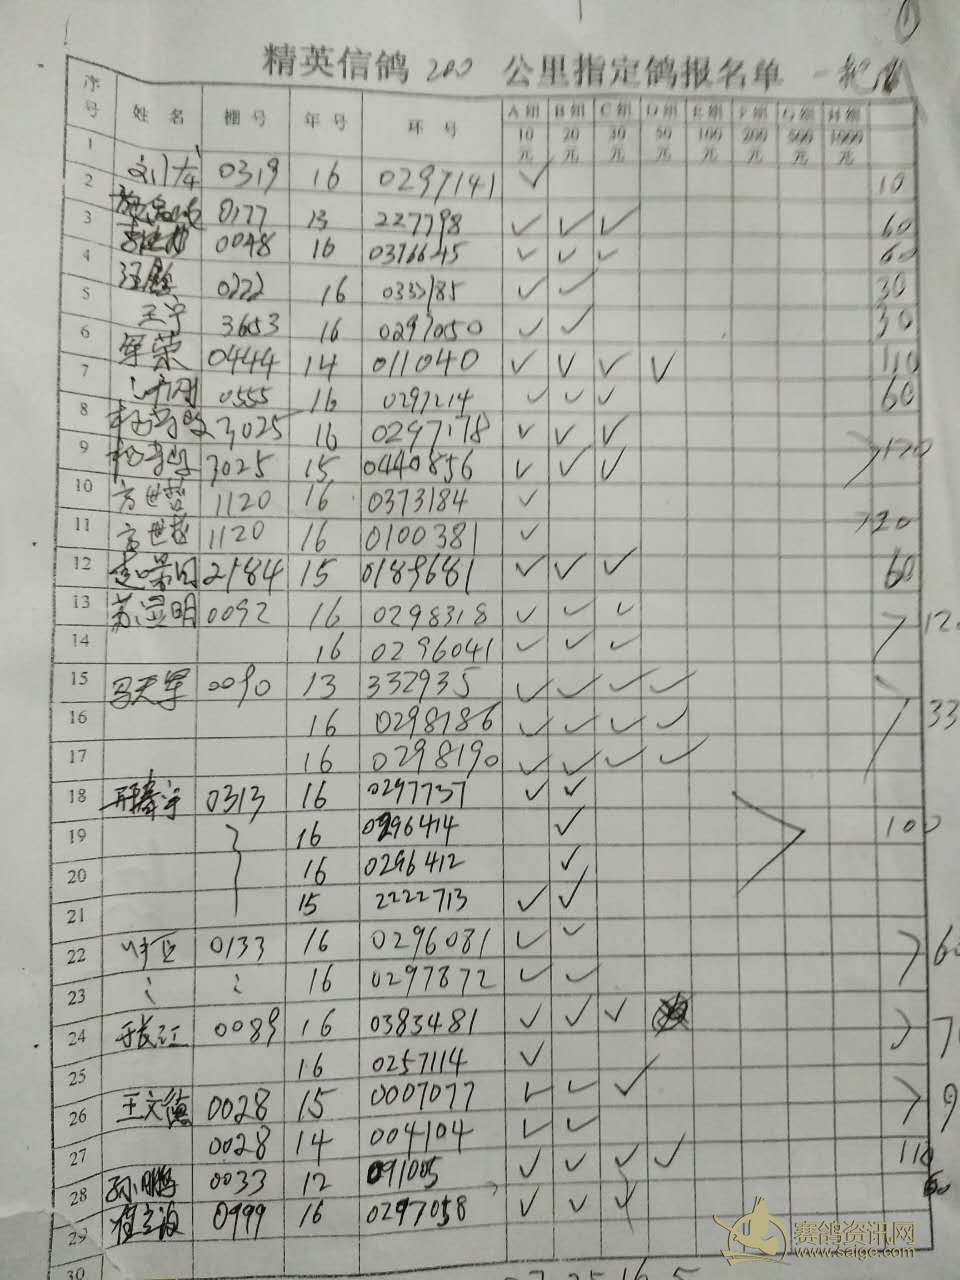 ①
精英信鸽 200 公里指定鸽报名单
序号 姓名 棚号 年号 环号 A组10元 B组20元 C组30元 D组50元 E组100元 F组200元 G组500元 H组1000元
1 0319 16 0297141 ✓ 10
2 0177 13 227798 ✓ ✓ ✓ 60
3 0048 16 0376645 ✓ ✓ ✓ 60
4 0222 16 ✓ ✓ 30
5 王宁 3653 16 0297050 ✓ ✓ 30
6 军荣 0444 14 011040 ✓ ✓ ✓ ✓ 110
7 0555 16 0297214 ✓ ✓ ✓ 60
8 3025 16 0297178 ✓ ✓ ✓
9 3025 15 0440856 ✓ ✓ ✓ 120
10 方世哲 1120 16 0373184 ✓
11 方世哲 1120 16 0100381 ✓ 20
12 2184 15 0189681 ✓ ✓ ✓ 60
13 苏显明 0092 16 0298318 ✓ ✓ ✓ 12
14 16 0296041 ✓ ✓ ✓
15 马天军 0090 13 332935 ✓ ✓ ✓ ✓
16 16 0298186 ✓ ✓ ✓ ✓ 33
17 16 0298190 ✓ ✓ ✓ ✓
18 0313 16 0297737 ✓ ✓
19 16 0296414 ✓ 100
20 16 0296412 ✓
21 15 2222713 ✓ ✓
22 0133 16 0296081 ✓ ✓ 6
23 16 0297872 ✓ ✓
24 于长江 0089 16 0383481 ✓ ✓ ✓ 7
25 16 0257114 ✓
26 王文德 0028 15 0007077 ✓ ✓ ✓ 9
27 0028 14 004104 ✓ ✓
28 孙鹏 0033 12 091005 ✓ ✓ ✓ ✓ 110
29 0999 16 0297058 ✓ ✓ ✓ 60
30
赛鸽资讯网
www.saige.com